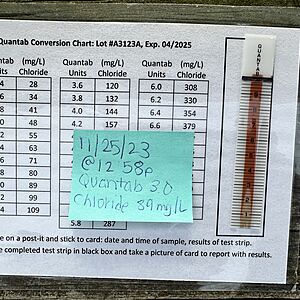 Quantab Conversion Chart: Lot #A3123A, Exp. 04/2025
Quantab (mg/L) Quantab (mg/L)
Units Chloride Units Chloride Units Chloride
28 3.6 120 6.0 308
34 3.8 132 6.2 330
41 4.0 144 6.4 354
48 4.2 157 6.6 379
55
63
71
80
89
99
109
5.8 287
11/25/23
@12 58p
Quantab 3.0
Chloride 89 mg/L
QUANTAB
e on a post-it and stick to card: date and time of sample, results of test strip.
e completed test strip in black box and take a picture of card to report with results.